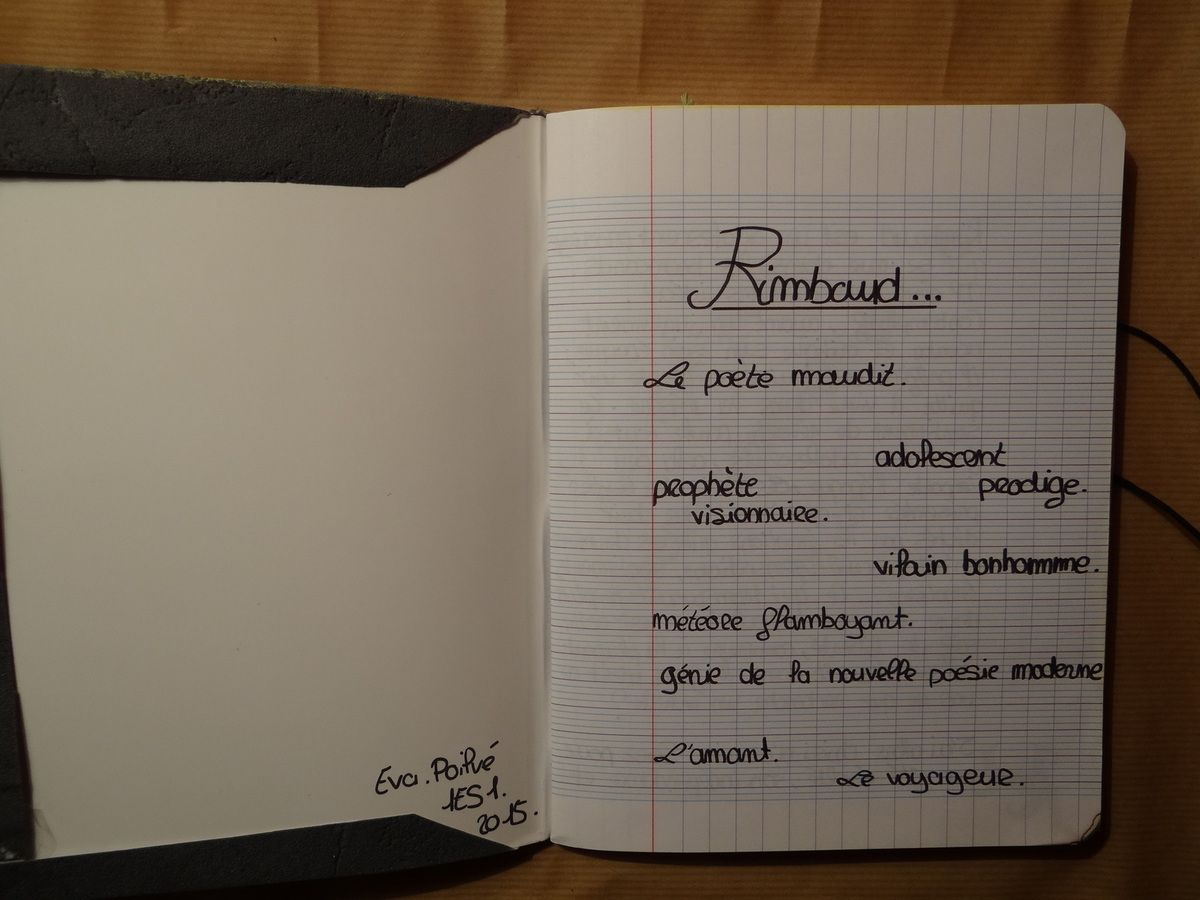 Rimbaud...
Le poète maudit.
adolescent
prodige.
prophète
visionnaire.
vilain bonhomme.
météore flamboyant.
génie de la nouvelle poésie moderne
L'amant.
Le voyageur.
Eva.
1ES1.
2015.